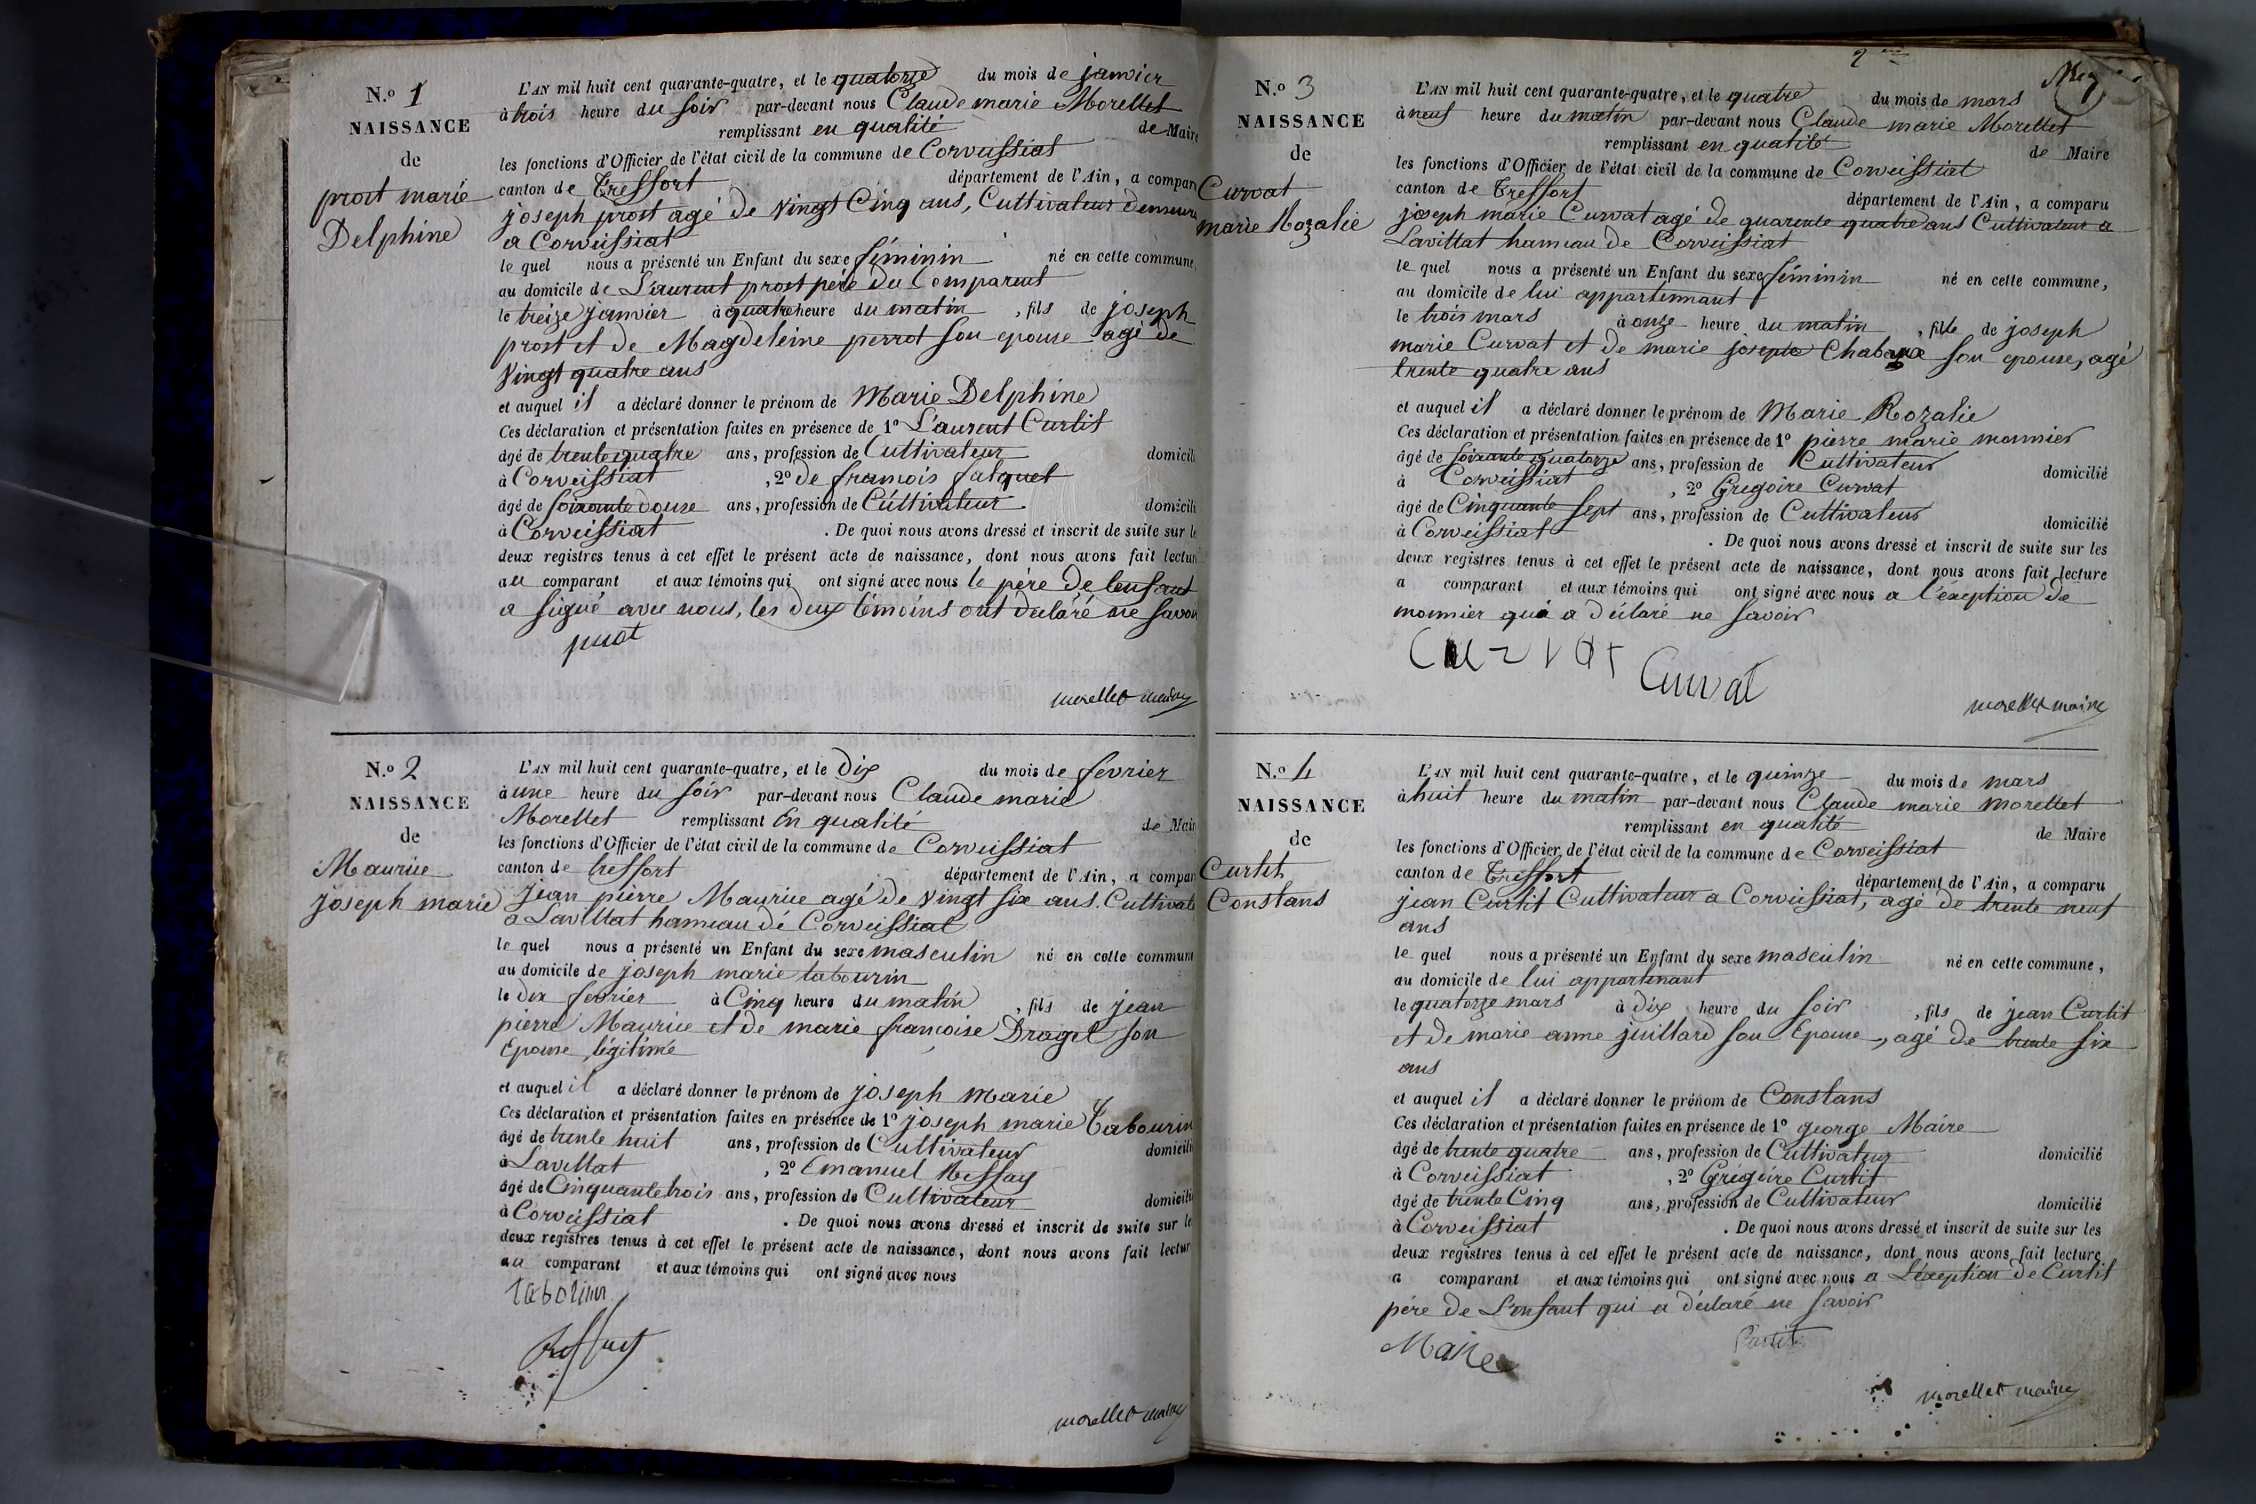 N.º 1
NAISSANCE
de
prost marie
Delphine
L'AN mil huit cent quarante-quatre, et le quatorze du mois de janvier
à trois heure du soir par-devant nous Claude marie Morellet
remplissant en qualité de Maire
les fonctions d'Officier de l'état civil de la commune de Corveissiat
canton de Treffort département de l'Ain, a compar
joseph prost agé de vingt Cinq ans, Cultivateur demeura
a Corveissiat
le quel nous a présenté un Enfant du sexe féminin né en cette commune,
au domicile de Laurent prost père du Comparent
le treize janvier à quatre heure du matin, fils de joseph
prost et de Magdeleine perrot son epouse agé de
vingt quatre ans
et auquel il a déclaré donner le prénom de Marie Delphine
Ces déclaration et présentation faites en présence de 1º Laurent Curtit
âgé de trente quatre ans, profession de Cultivateur domicili
à Corveissiat, 2º de francois falquet
âgé de soixante douse ans, profession de Cultivateur domicili
à Corveissiat. De quoi nous avons dressé et inscrit de suite sur le
deux registres tenus à cet effet le présent acte de naissance, dont nous avons fait lectur
au comparant et aux témoins qui ont signé avec nous le père de lenfant
a signé avec nous, les deux témoins ont déclaré ne savoir
prost
morellet maire
N.º 2
NAISSANCE
de
Maurice
joseph marie
L'AN mil huit cent quarante-quatre, et le dix du mois de fevrier
à une heure du soir par-devant nous Claude marie
Morellet remplissant En qualité de Mair
les fonctions d'Officier de l'état civil de la commune de Corveissiat
canton de treffort département de l'Ain, a compar
jean pierre Maurice agé de vingt six ans Cultivate
a Lavillat hameau de Corveissiat
le quel nous a présenté un Enfant du sexe masculin né en cette commune
au domicile de joseph marie tabourin
le dix fevrier à Cinq heure du matin, fils de jean
pierre Maurice et de marie francoise Draget son
Epouse légitime
et auquel il a déclaré donner le prénom de joseph marie
Ces déclaration et présentation faites en présence de 1º joseph marie Tabourin
âgé de trente huit ans, profession de Cultivateur domicili
à Lavillat, 2º Emanuel
âgé de Cinquante trois ans, profession de Cultivateur domicili
à Corveissiat. De quoi nous avons dressé et inscrit de suite sur le
deux registres tenus à cet effet le présent acte de naissance, dont nous avons fait lectur
au comparant et aux témoins qui ont signé avec nous
tabourin
morellet maire
2me
N.º 3
NAISSANCE
de
Curvat
marie Rozalie
L'AN mil huit cent quarante-quatre, et le quatre du mois de mars
à neuf heure du matin par-devant nous Claude marie Morellet
remplissant en qualité de Maire
les fonctions d'Officier de l'état civil de la commune de Corveissiat
canton de Treffort département de l'Ain, a comparu
joseph marie Curvat agé de quarente quatre ans Cultivateur a
Lavillat hameau de Corveissiat
le quel nous a présenté un Enfant du sexe féminin né en cette commune,
au domicile de lui appartennant
le trois mars à onze heure du matin, fille de joseph
marie Curvat et de marie josepte Chabaux son epouse, agé
trente quatre ans
et auquel il a déclaré donner le prénom de Marie Rozalie
Ces déclaration et présentation faites en présence de 1º pierre marie monnier
âgé de soixante quatorze ans, profession de Cultivateur domicilié
à Corveissiat, 2º Grégoire Curvat
âgé de Cinquante sept ans, profession de Cultivateur domicilié
à Corveissiat. De quoi nous avons dressé et inscrit de suite sur les
deux registres tenus à cet effet le présent acte de naissance, dont nous avons fait lecture
a comparant et aux témoins qui ont signé avec nous a l'éxeption de
monnier qui a déclaré ne savoir
Curvat
Curvat
morellet maire
N.º 4
NAISSANCE
de
Curtit
Constans
L'AN mil huit cent quarante-quatre, et le quinze du mois de mars
à huit heure du matin par-devant nous Claude marie morellet
remplissant en qualité de Maire
les fonctions d'Officier de l'état civil de la commune de Corveissiat
canton de Treffort département de l'Ain, a comparu
jean Curtit Cultivateur a Corveissiat, agé de trente neuf
ans
le quel nous a présenté un Enfant du sexe masculin né en cette commune,
au domicile de lui appartenant
le quatorze mars à dix heure du soir, fils de jean Curtit
et de marie anne juillard son Epouse, agé de trente six
ans
et auquel il a déclaré donner le prénom de Constans
Ces déclaration et présentation faites en présence de 1º george Maire
âgé de trente quatre ans, profession de Cultivateur domicilié
à Corveissiat, 2º Grégoire Curtit
âgé de trente Cinq ans, profession de Cultivateur domicilié
à Corveissiat. De quoi nous avons dressé et inscrit de suite sur les
deux registres tenus à cet effet le présent acte de naissance, dont nous avons fait lecture
a comparant et aux témoins qui ont signé avec nous a L'éxeption de Curtit
père de L'enfant qui a déclaré ne savoir
Maire Curtit
morellet maire